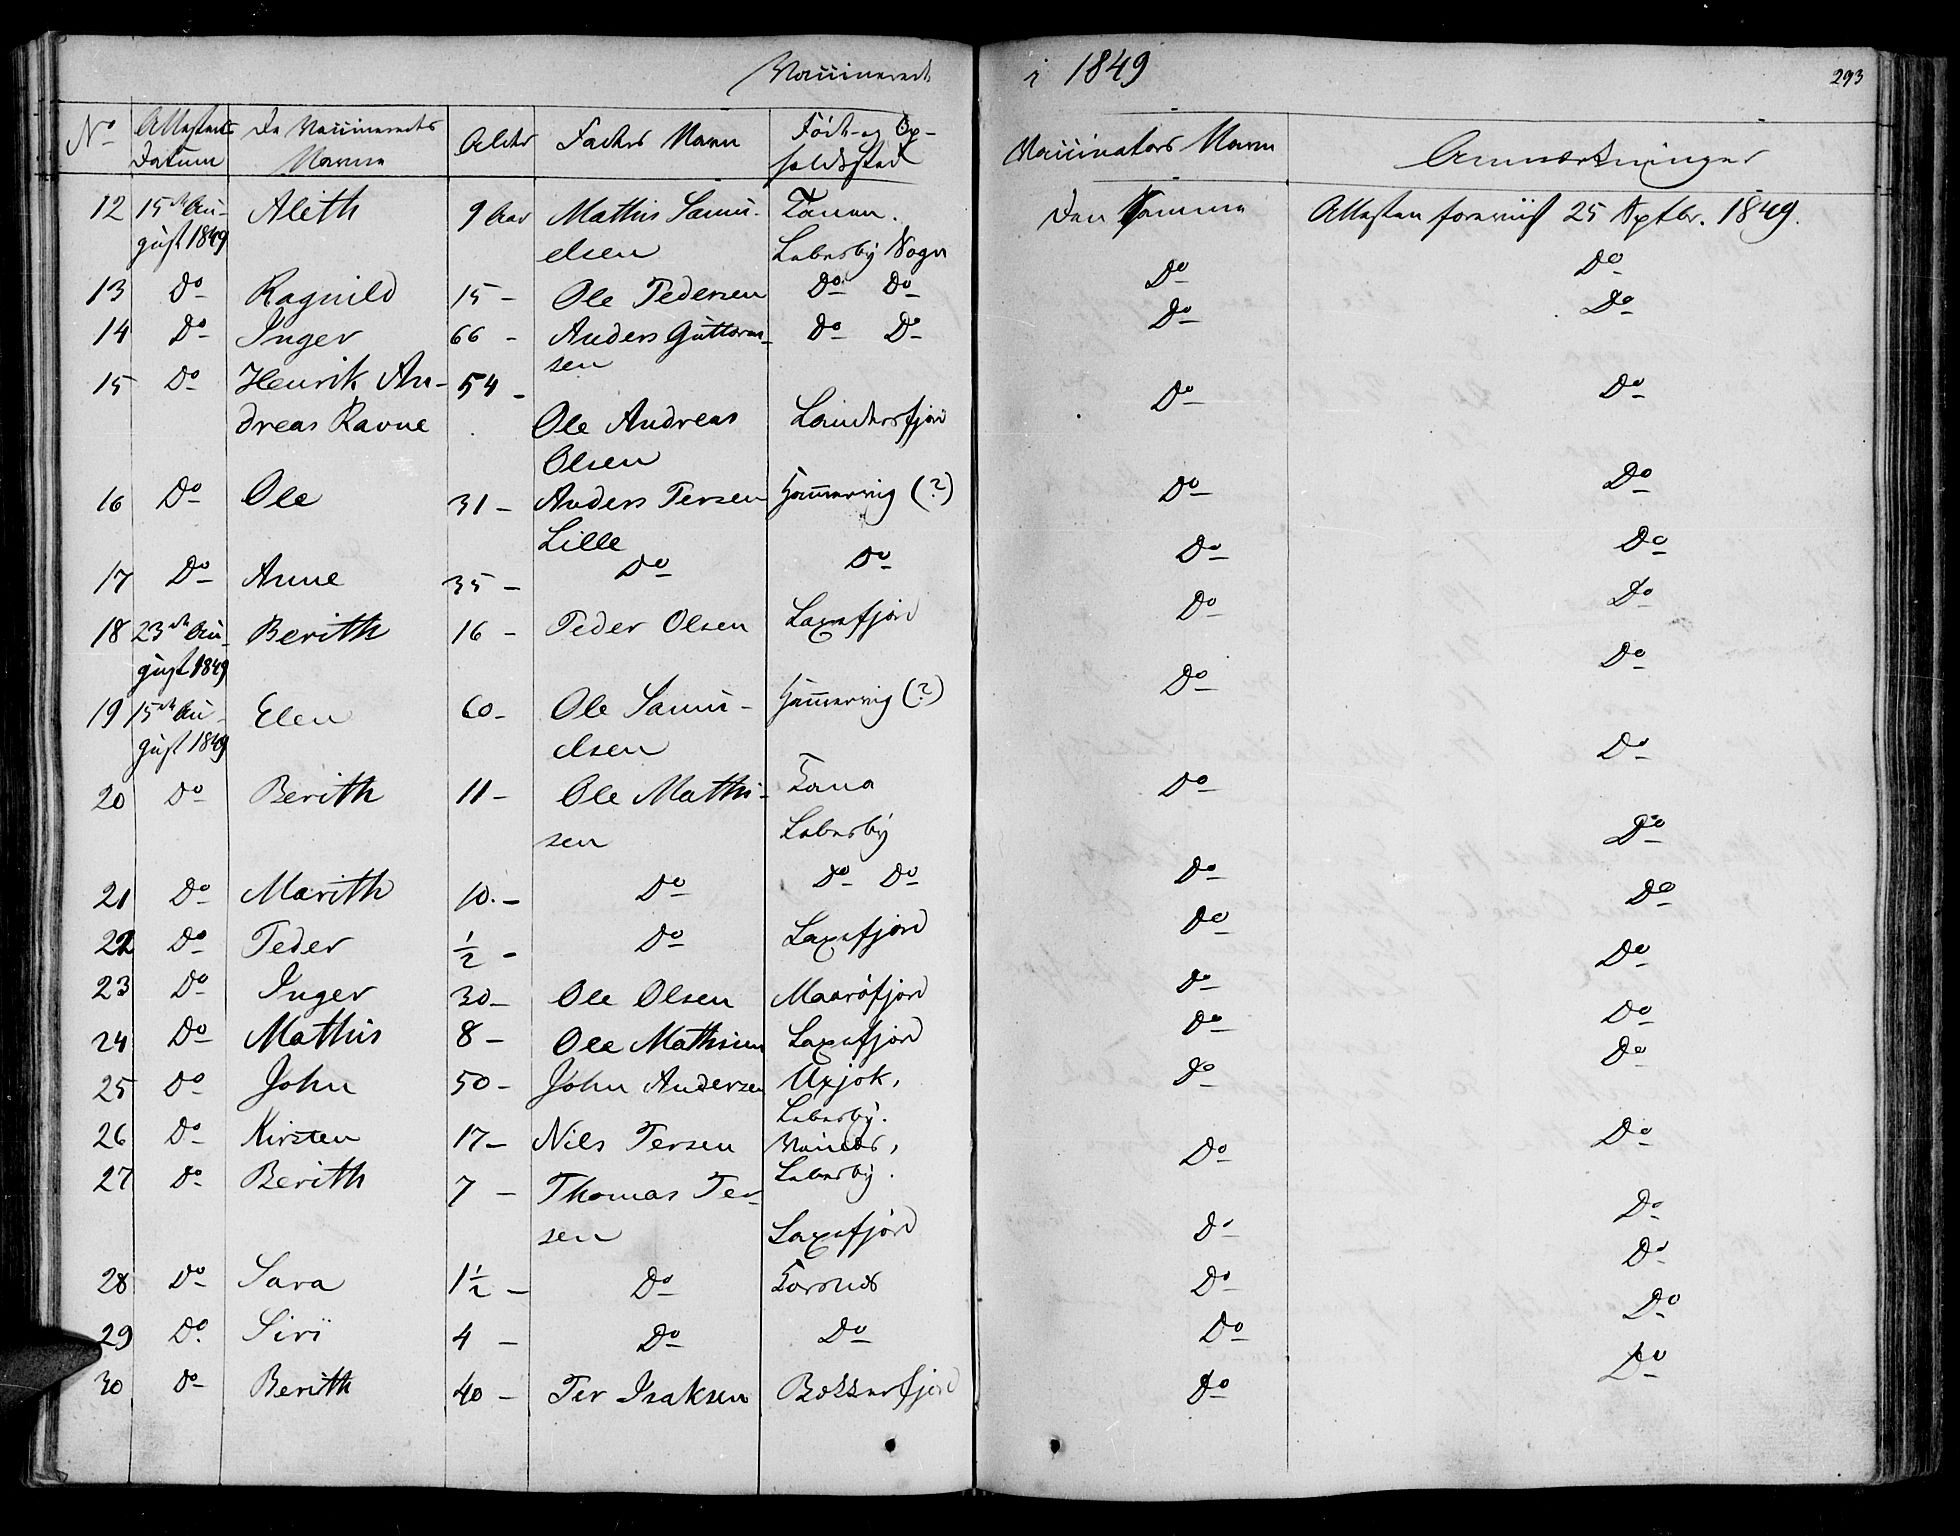 Vaccinerede i 1849 293
No Attestens Datum De Vaccineredes Navne Alder Faders Navn Føde- og Opholdssted Vaccinators Navn Anmærkninger
12 15de Au- Aleth 9 Aar Mathis Samu- Tanen. Den Samme Attesten foreviist 25 Septbr. 1849.
gust 1849 elsen Lebesby Sogn
13 Do Ragnild 15 - Ole Pedersen Do Do Do Do
14 Do Inger 66 - Anders Guttorm- Do Do Do Do
sen
15 Do Henrik An- 54 - Do Do
dreas Ravne Ole Andreas Landersfjord
Olsen
16 Do Ole 31 - Anders Persen Hammervig (?) Do Do
Lille
17 Do Anne 35 - Do Do Do Do
18 23de Au- Berith 16 - Peder Olsen Laxefjord Do Do
gust 1849
19 15de Au- Elen 60 - Ole Samu- Hammervig (?) Do Do
gust 1849 elsen
20 Do Berith 11 - Ole Mathi- Tana Do Do
sen Lebesby
21 Do Marith 10. - Do Do Do Do Do
22 Do Peder ½ - Do Laxefjord Do Do
23 Do Inger 30 - Ole Olsen Maarøfjord Do Do
24 Do Mathis 8 - Ole Mathisen Laxefjord Do Do
25 Do John 50 - John Andersen Uxjok, Do Do
Lebesby.
26 Do Kirsten 17 - Nils Persen Do Do
Lebesby.
27 Do Berith 7 - Thomas Per-
sen Laxefjord Do Do
28 Do Sara 1½ - Do Torsnes Do Do
29 Do Siri 4 - Do Do Do Do
30 Do Berith 40 - Per Isaksen Bekkerfjord Do Do